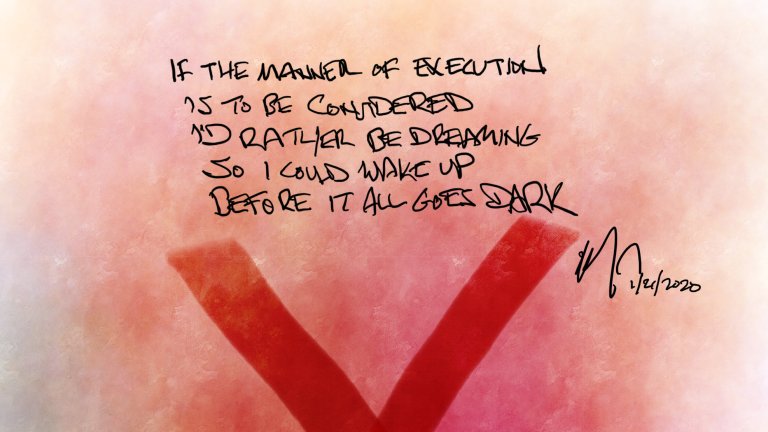 IF THE MANNER OF EXECUTION
IS TO BE CONSIDERED
I'D RATHER BE DREAMING
SO I COULD WAKE UP
BEFORE IT ALL GOES DARK
1/21/2020